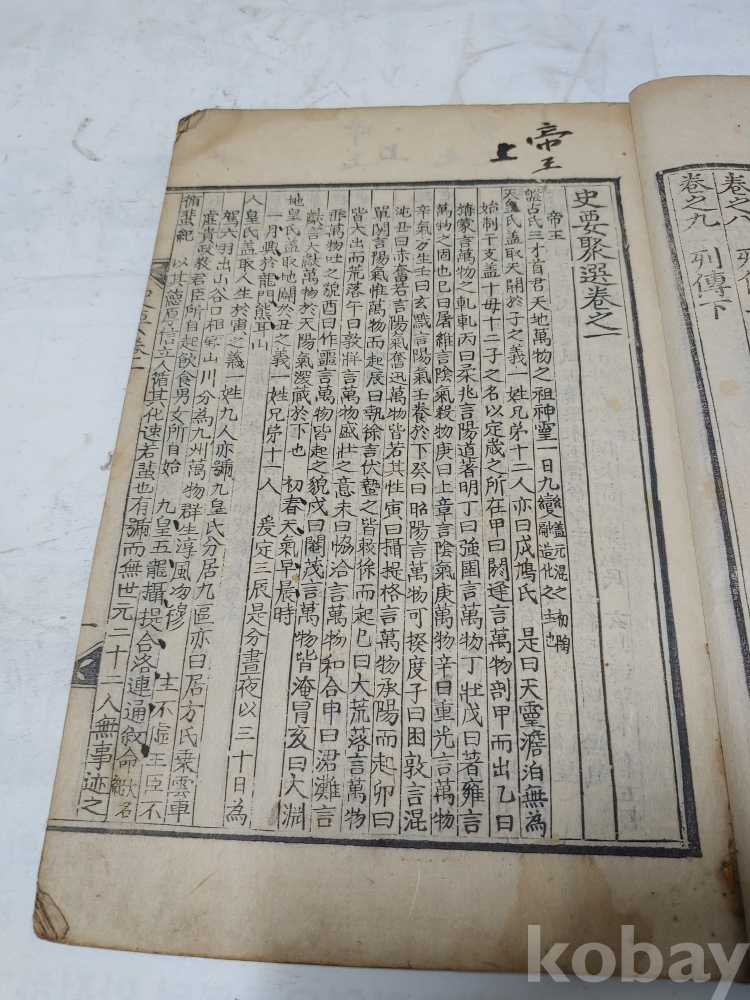 卷之八
卷之九 列傳下
帝王
上
史要聚選卷之一
帝王
盤古氏三才首君天地萬物之祖神靈一日九變蓋元混之初陶融造化之主也
天皇氏蓋取天開於子之義一姓兄弟十二人亦曰成鳩氏 是曰天靈澹泊無為
始制干支蓋十母十二子之名以定歲之所在甲曰閼逢言萬物剖甲而出乙曰
旃蒙言萬物之軋軋丙曰柔兆言陽道著明丁曰強圉言萬物丁壯戊曰著雍言
萬物之固也己曰屠維言陰氣殺物庚曰上章言陰氣庚萬物辛曰重光言萬物
辛氣方生壬曰玄黓言陽氣壬養於下癸曰昭陽言萬物可揆度子曰困敦言混
沌丑曰赤奮若言陽氣奮迅萬物皆若其性寅曰攝提格言萬物承陽而起卯曰
單閼言陽氣惟萬物而起辰曰執徐言伏蟄之皆敕徐而起巳曰大荒落言萬物
皆大出而荒落午曰敦牂言萬物盛壯之意未曰協洽言萬物和合申曰涒灘言
萬物吐之貌酉曰作噩言萬物皆起之貌戌曰閹茂言萬物皆淹冒亥曰大淵
獻言大獻萬物於天陽氣深蔵於下也 初春天氣早晨時
地皇氏蓋取地闢於丑之義一姓兄弟十一人 爰定三辰是分晝夜以三十日為
一月興於龍門熊耳山
人皇氏蓋取人生於寅之義一姓九人亦號九皇氏分居九區亦曰居方氏乘雲車
駕六羽出山谷口相厥山川分為九州萬物群生淳風沕穆 主不虛王臣不
虛貴政敎君臣所自起飲食男女所自始 九皇五龍攝提合洛連通敍命六紀名
循蜚紀 以其德厚信立人循其化速若蜚也有號而無世元二十二人無事迹之